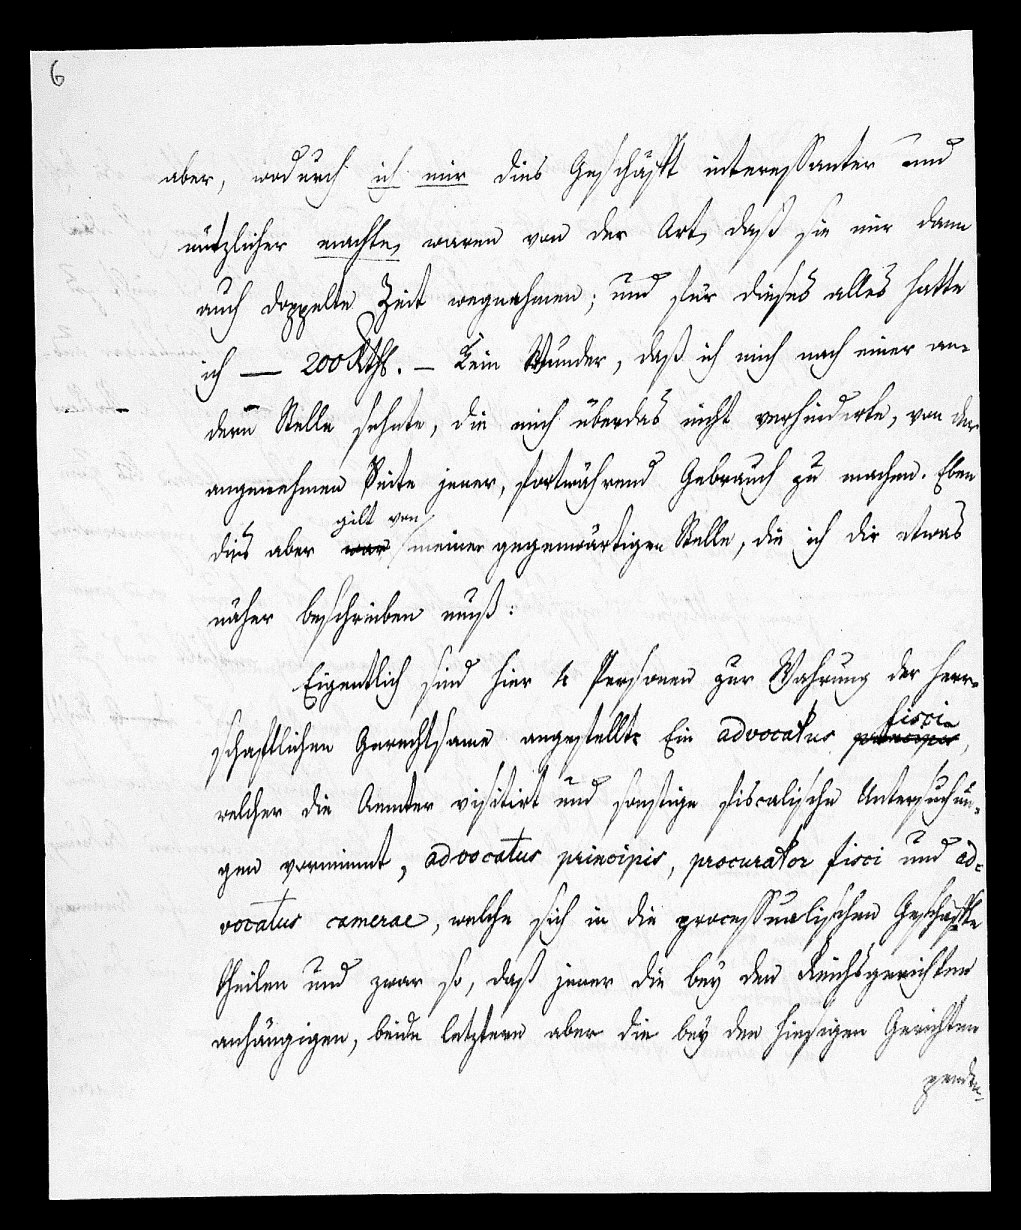 6
aber, wodurch ich mir dies Geschäft interessanter und
nützlicher machte, waren von der Art, daß sie mir dann
auch doppelte Zeit wegnahmen; und für dieses alles hatte
ich — 200 Rthl. — Kein Wunder, daß ich mich nach einer an-
dern Stelle sehnte, die mich überdas nicht verhinderte, von der
angenehmen Seite jener, fortwährend Gebrauch zu machen. Eben
gilt von
dies aber war meiner gegenwärtigen Stelle, die ich dir etwas
näher beschreiben muß:
Eigentlich sind hier 4 Personen zur Wahrung der herr-
schaftlichen Gerechtsame angestellt: Ein advocatus principis fisci,
welcher die Aemter visitirt und sonstige fiscalische Untersuchun-
gen vornimmt, advocatus principis, procurator fisci und ad-
vocatus camerae, welche sich in die processualischen Geschäfte
theilen und zwar so, daß jener die bey den Reichsgerichten
anhängigen, beide letztern aber die bey den hiesigen Gerichten